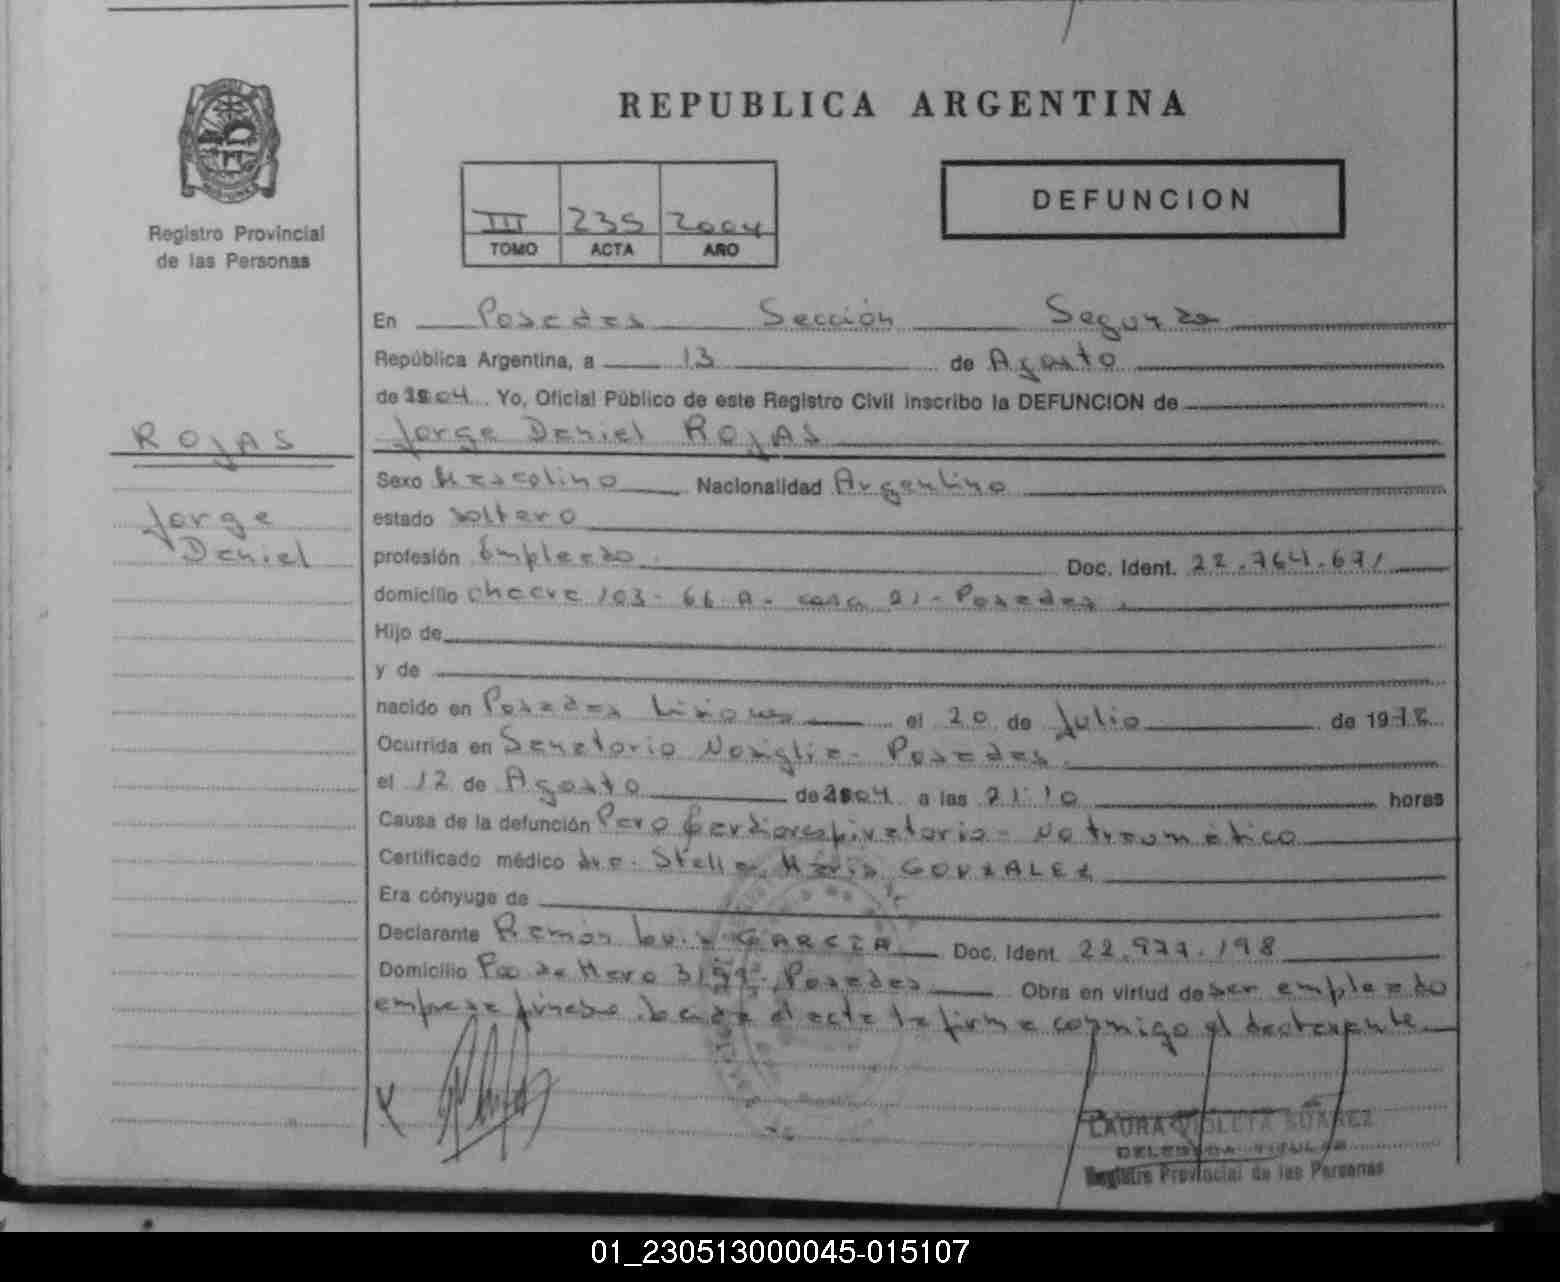 REPUBLICA ARGENTINA
Registro Provincial
de las Personas
III 235 2004
TOMO ACTA AÑO
DEFUNCION
En Posadas Sección Segunda
República Argentina, a 13 de Agosto
de 2004 Yo, Oficial Público de este Registro Civil inscribo la DEFUNCION de
ROJAS
Jorge Daniel ROJAS
Sexo Masculino Nacionalidad Argentino
Jorge
Daniel
estado soltero
profesión Empleado. Doc. Ident. 22.764.671
domicilio chacra 103 - 66 A - casa 21 - Posadas.
Hijo de
y de
nacido en Posadas Misiones el 20 de Julio de 1972
Ocurrida en Sanatorio Nosiglia - Posadas.
el 12 de Agosto de 2004 a las 21:10 horas
Causa de la defunción Paro Cardiorespiratorio - No traumático
Certificado médico dra. Stella Maris GONZALEZ
Era cónyuge de
Declarante Ramón Luis GARCIA Doc. Ident. 22.977.198
Domicilio Pco de Haro Posadas Obra en virtud de ser empleado
empresa fúnebre. Leída el acta la firma conmigo el declarante
LAURA VIOLETA SUAREZ
DELEGADA TITULAR
Registro Provincial de las Personas
01_230513000045-015107